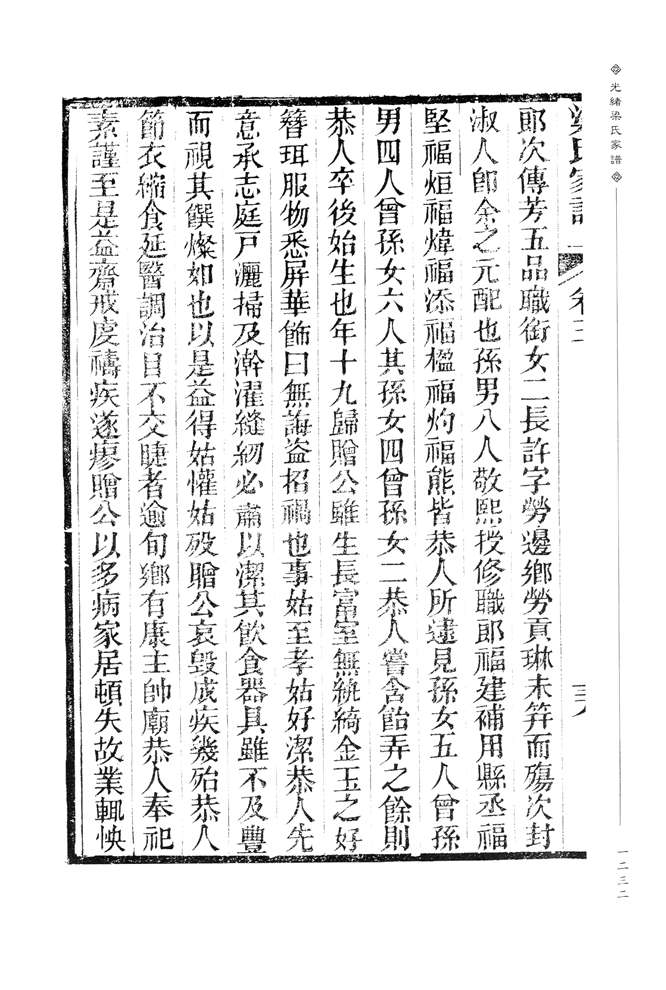 光緒梁氏家譜
梁氏家譜 卷三
郎次傳芳五品職銜女二長許字勞邊鄉勞貢琳未笄而殤次封
淑人卽余之元配也孫男八人敬熙授修職郎福建補用縣丞福
堅福烜福煒福添福楹福灼福熊皆恭人所逮見孫女五人曾孫
男四人曾孫女六人其孫女四曾孫女二恭人嘗含飴弄之餘則
恭人卒後始生也年十九歸贈公雖生長富室無紈綺金玉之好
簪珥服物悉屏華飾曰無誨盜招禍也事姑至孝姑好潔恭人先
意承志庭戸灑掃及澣濯縫紉必肅以潔其飲食器具雖不及豐
而視其饌燦如也以是益得姑懽姑歿贈公哀毀成疾幾殆恭人
節衣縮食延醫調治目不交睫者逾旬鄉有康主帥廟恭人奉祀
素謹至是益齋戒虔禱疾遂瘳贈公以多病家居頓失故業輒怏
一二三二